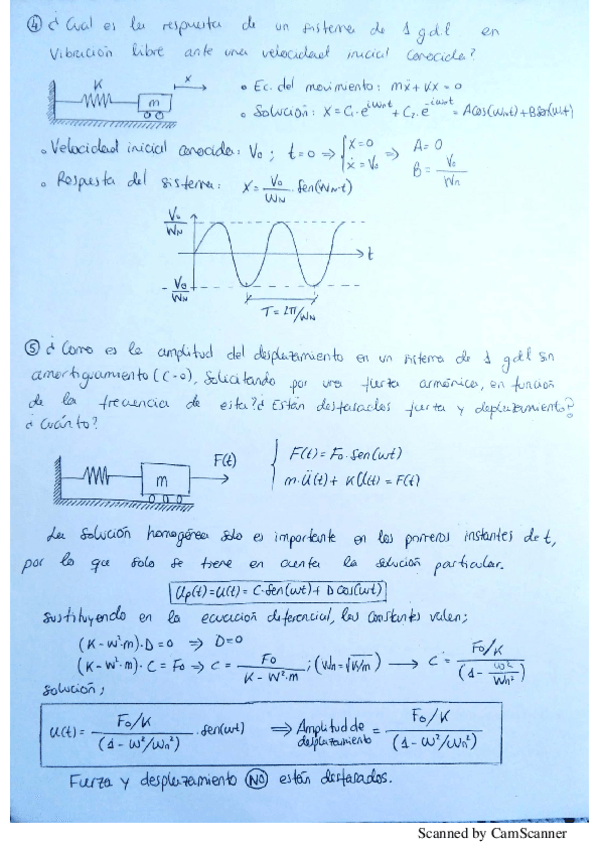 ④ ¿Cual es la respuesta de un sistema de 1 g.d.l en
vibración libre ante una velocidad inicial conocida?
K
m
x
• Ec. del movimiento: mẍ + Kx = 0
• Solución: x = C₁·e^{iWnt} + C₂·e^{-iWnt} = A cos(Wnt) + B sen(Wnt)
• Velocidad inicial conocida: V₀; t=0 ⇒ { x=0 ; ẋ=V₀ ⇒ A=0 ; B = V₀/Wn
• Respuesta del sistema: x = V₀/WN · Sen(WN·t)
V₀/WN
t
-V₀/WN
T = 2π/WN
⑤ ¿Como es la amplitud del desplazamiento en un sistema de 1 gdl sin
amortiguamiento (C=0), solicitando por una fuerza armónica, en función
de la frecuencia de esta? ¿Están desfasados fuerza y desplazamiento?
¿Cuánto?
m
F(t)
F(t) = F₀·sen(wt)
m·Ü(t) + K U(t) = F(t)
La solución homogénea solo es importante en los primeros instantes de t,
por lo que solo se tiene en cuenta la solución particular.
Up(t) = U(t) = C·sen(wt) + D cos(wt)
Sustituyendo en la ecuación diferencial, las constantes valen;
(K - W²·m)·D = 0 ⇒ D=0
(K - W²·m)·C = F₀ ⇒ C = F₀/(K - W²·m) ; (Wn = √K/m) → C = (F₀/K)/(1 - W²/Wn²)
Solución;
U(t) = (F₀/K)/(1 - W²/Wn²) · sen(wt) ⇒ Amplitud de desplazamiento = (F₀/K)/(1 - W²/Wn²)
Fuerza y desplazamiento NO están desfasados.
Scanned by CamScanner